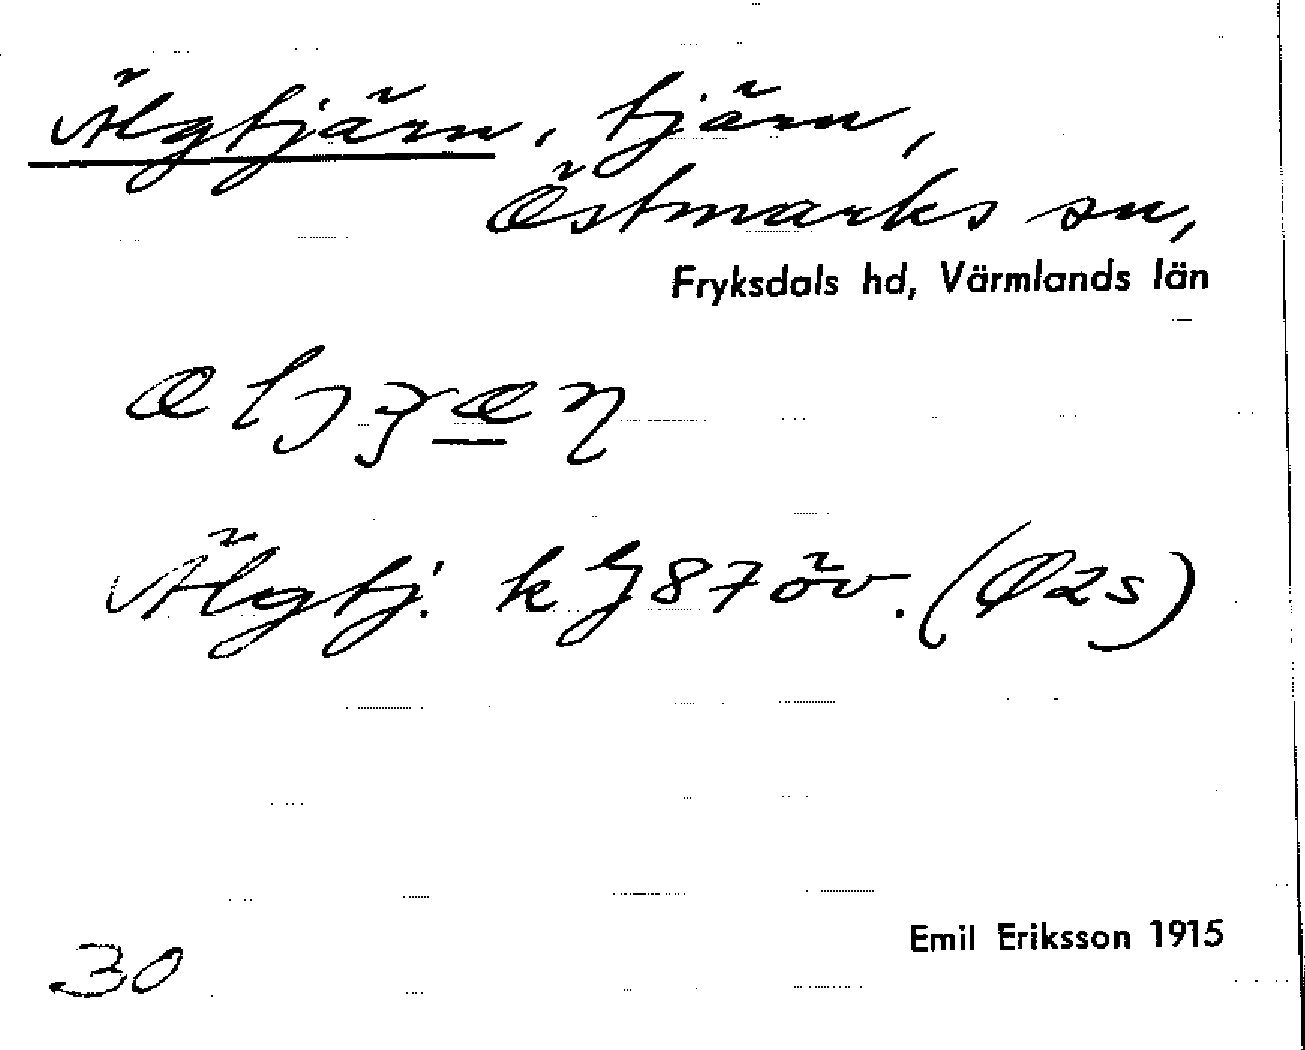 Älgtjärn, tjärn,
Östmarks sn,
Fryksdals hd, Värmlands län
Älgtj. k G87 öv. (Ø2s)
Emil Eriksson 1915
30